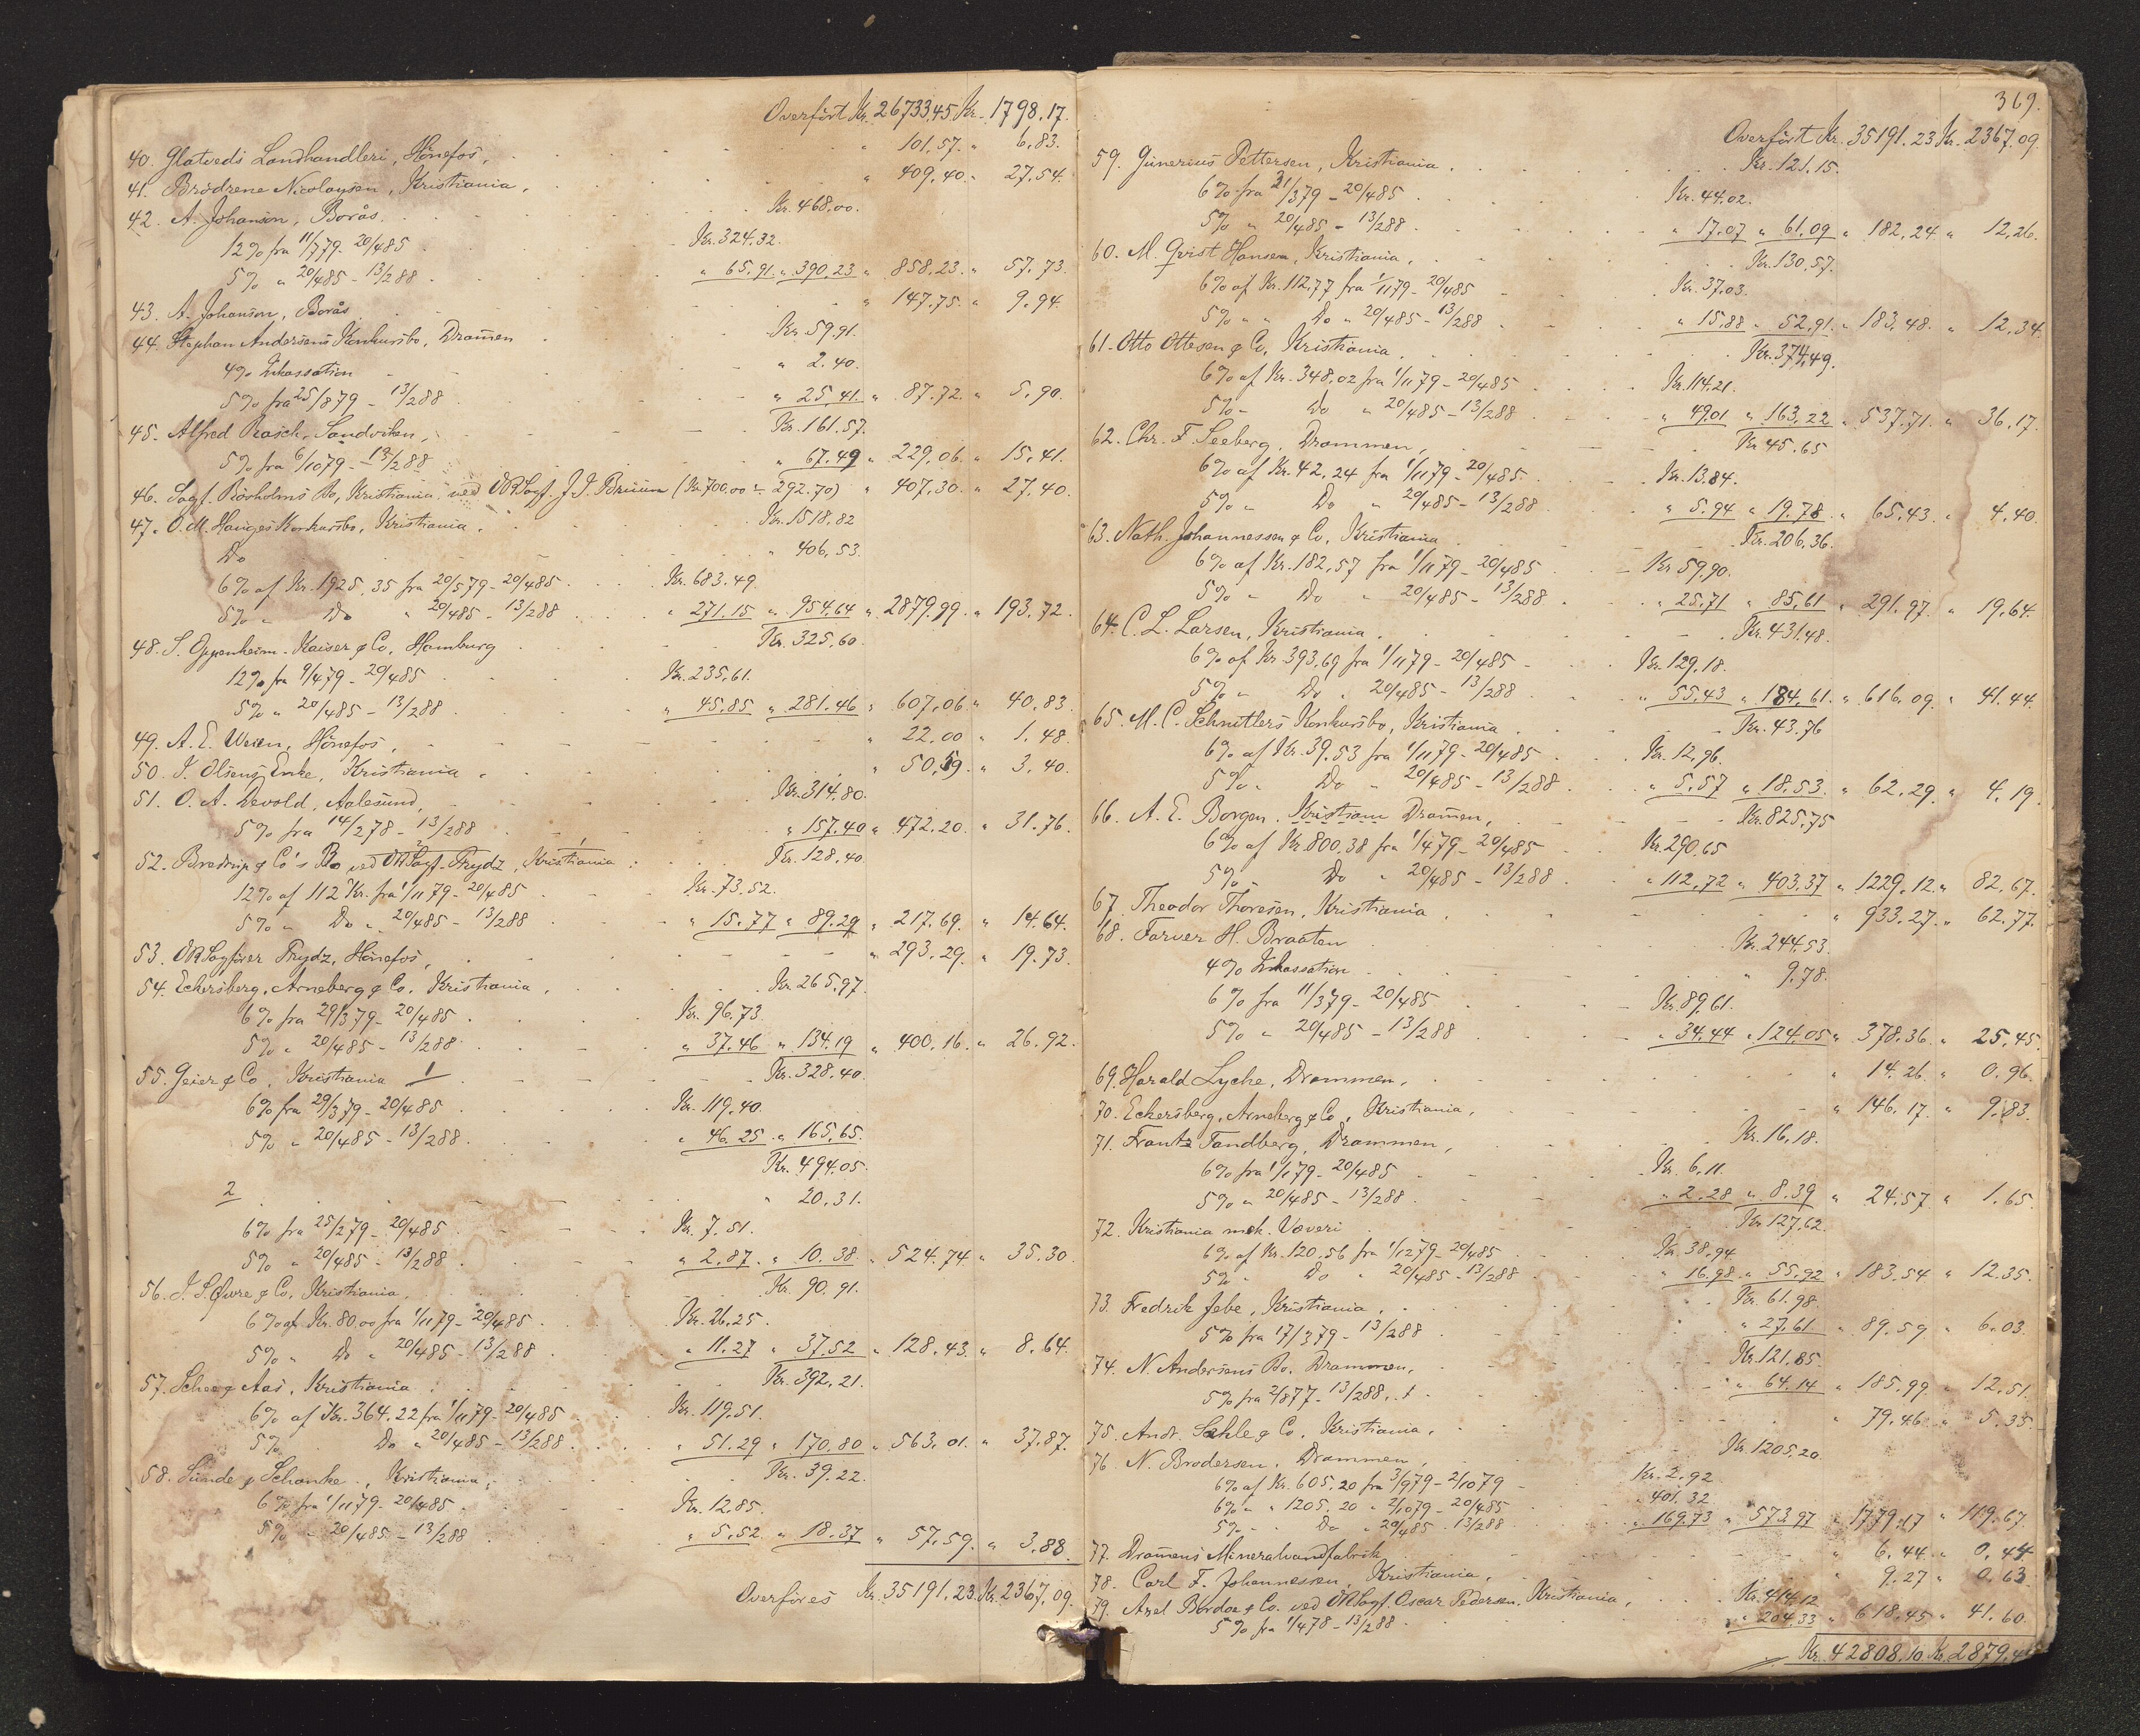 Overført Kr. 26733,45 Kr. 1798,17.
40. Glatveds Landhandleri, Hönefos, " 101,57. " 6,83.
41. Brödrene Nicolaysen, Kristiania, " 409,40. " 27,54.
42. A. Johanson, Borås. Kr. 468,00.
12% fra 11/7 79 - 20/4 85 Kr. 324,32.
5% " 20/4 85 - 13/2 88 " 65,91. " 390,23 " 858,23. " 57,73.
43. A. Johanson, Borås " 147,75. " 9,94.
44. Stephan Andersens Konkursbo, Dram̄en Kr. 59,91.
4% Inkassation " 2,40.
5% fra 25/8 79 - 13/2 88 " 25,41. " 87,72. " 5,90.
45. Alfred Rasch, Sandviken, Kr. 161,57.
5% fra 6/10 79 - 13/2 88 " 67,49 " 229,06. " 15,41.
46. Sagf. Rörholms Bo, Kristiania, ved ORSagf. J. J. Bruun (Kr. 700,00 ÷ 292,70) " 407,30. " 27,40.
47. O. M. Hauges Konkursbo, Kristiania. Kr. 1518,82
Do " 406,53.
6% af Kr. 1925,35 fra 20/5 79 - 20/4 85 Kr. 683,49.
5% " Do " 20/4 85 - 13/2 88 " 271,15 " 954,64 " 2879,99. " 193,72.
48. S. Oppenheim-Kaiser & Co, Hamburg Kr. 325,60.
12% fra 9/4 79 - 20/4 85 Kr. 235,61.
5% " 20/4 85 - 13/2 88 " 45,85 " 281,46 " 607,06. " 40,83.
49. A. E. Weien, Hönefos, " 22,00 " 1,48.
50. J. Olsens Enke, Kristiania " 50,59. " 3,40.
51. O. A. Devold, Aalesund, Kr. 314,80.
5% fra 14/2 78 - 13/2 88 " 157,40 " 472,20. " 31,76.
52. Bredrup & Co's Bo ved ORSagf. Prydz, Kristiania Kr. 128,40.
12% af 112 Kr. fra 1/11 79 - 20/4 85 Kr. 73,52.
5% " Do " 20/4 85 - 13/2 88 " 15,77 " 89,29 " 217,69. " 14,64.
53. ORSagförer Prydz, Hönefos, " 293,29. " 19,73.
54. Eckersberg, Arneberg & Co, Kristiania, Kr. 265,97.
6% fra 29/3 79 - 20/4 85 Kr. 96,73.
5% " 20/4 85 - 13/2 88 " 37,46 " 134,19 " 400,16. " 26,92.
55. Geier & Co, Kristiania 1 Kr. 328,40.
6% fra 29/3 79 - 20/4 85 Kr. 119,40.
5% " 20/4 85 - 13/2 88. " 46,25 " 165,65.
Kr. 494,05.
2 " 20,31.
6% fra 25/2 79 - 20/4 85 Kr. 7,51.
5% " 20/4 85 - 13/2 88 " 2,87. " 10,38. " 524,74 " 35,30.
56. J. S. Qvre & Co, Kristiania, Kr. 90,91.
6% af Kr. 80,00 fra 1/11 79 - 20/4 85 Kr. 26,25.
5% " Do " 20/4 85 - 13/2 88 " 11,27 " 37,52 " 128,43. " 8,64.
57. Schee & Aas, Kristiania Kr. 392,21.
6% af Kr. 364,22 fra 1/11 79 - 20/4 85 Kr. 119,51.
5% Do " 20/4 85 - 13/2 88 " 51,29 " 170,80 " 563,01. " 37,87.
58. Sunde & Schanke, Kristiania, Kr. 39,22.
6% fra 1/11 79 - 20/4 85 Kr. 12,85.
5% " 20/4 85 - 13/2 88 " 5,52. " 18,37 " 57,59. " 3,88.
Overføres Kr. 35191,23 Kr. 2367,09.
369.
Overført Kr. 35191,23 Kr. 2367,09.
59. Gunerius Pettersen, Kristiania. Kr. 121,15.
6% fra 21/3 79 - 20/4 85 Kr. 44,02.
5% " 20/4 85 - 13/2 88 " 17,07 " 61,09 " 182,24 " 12,26.
60. M. Qvist Hansen, Kristiania, Kr. 130,57.
6% af Kr. 112,77 fra 1/11 79 - 20/4 85 Kr. 37,03.
5% " " Do " 20/4 85 - 13/2 88 " 15,88 " 52,91. " 183,48. " 12,34.
61. Otto Ottesen & Co, Kristiania. Kr. 374,49.
6% af Kr. 348,02 fra 1/11 79 - 20/4 85 Kr. 114,21.
5% " Do " 20/4 85 - 13/2 88 " 49,01 " 163,22 " 537,71. " 36,17.
62. Chr. F. Seeberg, Drammen, Kr. 45,65
6% af Kr. 42,24 fra 1/11 79 - 20/4 85. Kr. 13,84.
5% " Do " 20/4 85 - 13/2 88 " 5,94 " 19,78 " 65,43. " 4,40.
63. Nath. Johannessen & Co, Kristiania Kr. 206,36.
6% af Kr. 182,57 fra 1/11 79 - 20/4 85 Kr. 59,90.
5% " Do " 20/4 85 - 13/2 88 " 25,71 " 85,61 " 291,97. " 19,64.
64. C. L. Larsen, Kristiania. Kr. 431,48.
6% af Kr. 393,69 fra 1/11 79 - 20/4 85 Kr. 129,18.
5% " Do " 20/4 85 - 13/2 88 " 55,43 " 184,61. " 616,09. " 41,44.
65. M. C. Schnitlers Konkursbo, Kristiania Kr. 43,76
6% af Kr. 39,53 fra 1/11 79 - 20/4 85 Kr. 12,96.
5% " Do " 20/4 85 - 13/2 88 " 5,57 " 18,53. " 62,29. " 4,19.
66. A. E. Borgen, Kristian Dram̄en, Kr. 825,75
6% af Kr. 800,38 fra 1/4 79 - 20/4 85 Kr. 290,65
5% " Do " 20/4 85 - 13/2 88 " 112,72 " 403,37 " 1229,12. " 82,67.
67. Theodor Thoresen, Kristiania, " 933,27. " 62,77.
68. Farver H. Braaten Kr. 244,53.
4% Inkassation " 9,78.
6% fra 11/3 79 - 20/4 85 Kr. 89,61.
5% " 20/4 85 - 13/2 88 " 34,44 " 124,05 " 378,36. " 25,45.
69. Harald Lyche, Drammen, " 14,26. " 0,96.
70. Eckersberg, Arneberg & Co, Kristiania, " 146,17. " 9,83.
71. Frantz Tandberg, Drammen, Kr. 16,18.
6% fra 1/1 79 - 20/4 85 Kr. 6,11.
5% " 20/4 85 - 13/2 88 " 2,28 " 8,39 " 24,57 " 1,65.
72. Kristiania mek. Væveri Kr. 127,62.
6% af Kr. 120,56 fra 1/12 79 - 20/4 85 Kr. 38,94
5% " Do " 20/4 85 - 13/2 88 " 16,98 " 55,92 " 183,54 " 12,35.
73. Fredrik Jebe, Kristiania, Kr. 61,98.
5% fra 17/3 79 - 13/2 88 " 27,61 " 89,59 " 6,03.
74. N. Andersens Bo, Drammen, Kr. 121,85.
5% fra 2/8 77 - 13/2 88. " 64,14 " 185,99. " 12,51.
75. Andr. Sahle & Co, Kristiania, " 79,46 " 5,35.
76. N. Brodersen, Drammen, Kr. 1205,20.
6% af Kr. 605,20 fra 3/9 79 - 2/10 79 Kr. 2,92.
6% " " 1205,20 " 2/10 79 - 20/4 85 " 401,32
5% " " Do " 20/4 85 - 13/2 88 " 169,73 " 573,97 " 1779,17 " 119,67.
77. Dram̄ens Mineralvandfabrik " 6,44 " 0,44
78. Carl F. Johannessen, Kristiania, " 9,27 " 0,63
79. Axel Bordoe & Co. ved ORSagf. Oscar Pedersen, Kristiania, Kr. 414,12
5% fra 1/4 78 - 13/2 88 " 204,33 " 618,45 " 41,60.
Kr. 42808,10 Kr. 2879,4